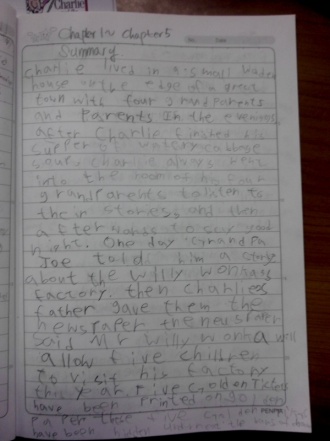 Charlie
Chapter 1~ Chapter 5
No. Date
Summary
Charlie lived in a small wooden
house on the edge of a great
town with four grandparents
and parents In the evenings
after Charlie finished his
supper of watery cabbage
soup, Charlie always went
into the room of his four
grandparents to listen to
their stories, and then
afterwards to say good
night. One day Grandpa
Joe told him a story
about the Willy Wonka's
factory. then Charlie's
father gave them the
newspaper the newspaper
said Mr Willy Wonka will
allow five children
to visit his factory
this year, five Golden Tickets
have been printed on golden
paper these five Golden
have been hidden